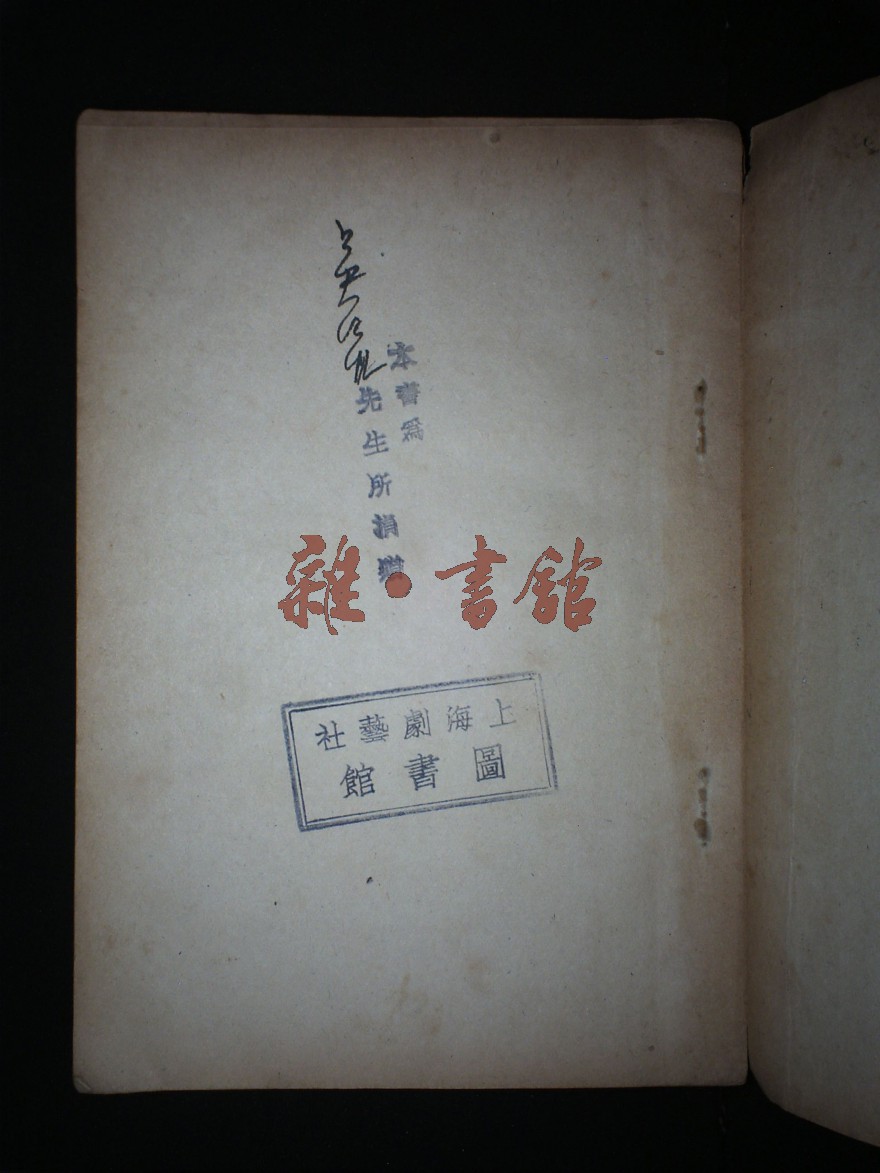 本書爲
先生所捐贈
雜·書館
上海劇藝社
圖書館